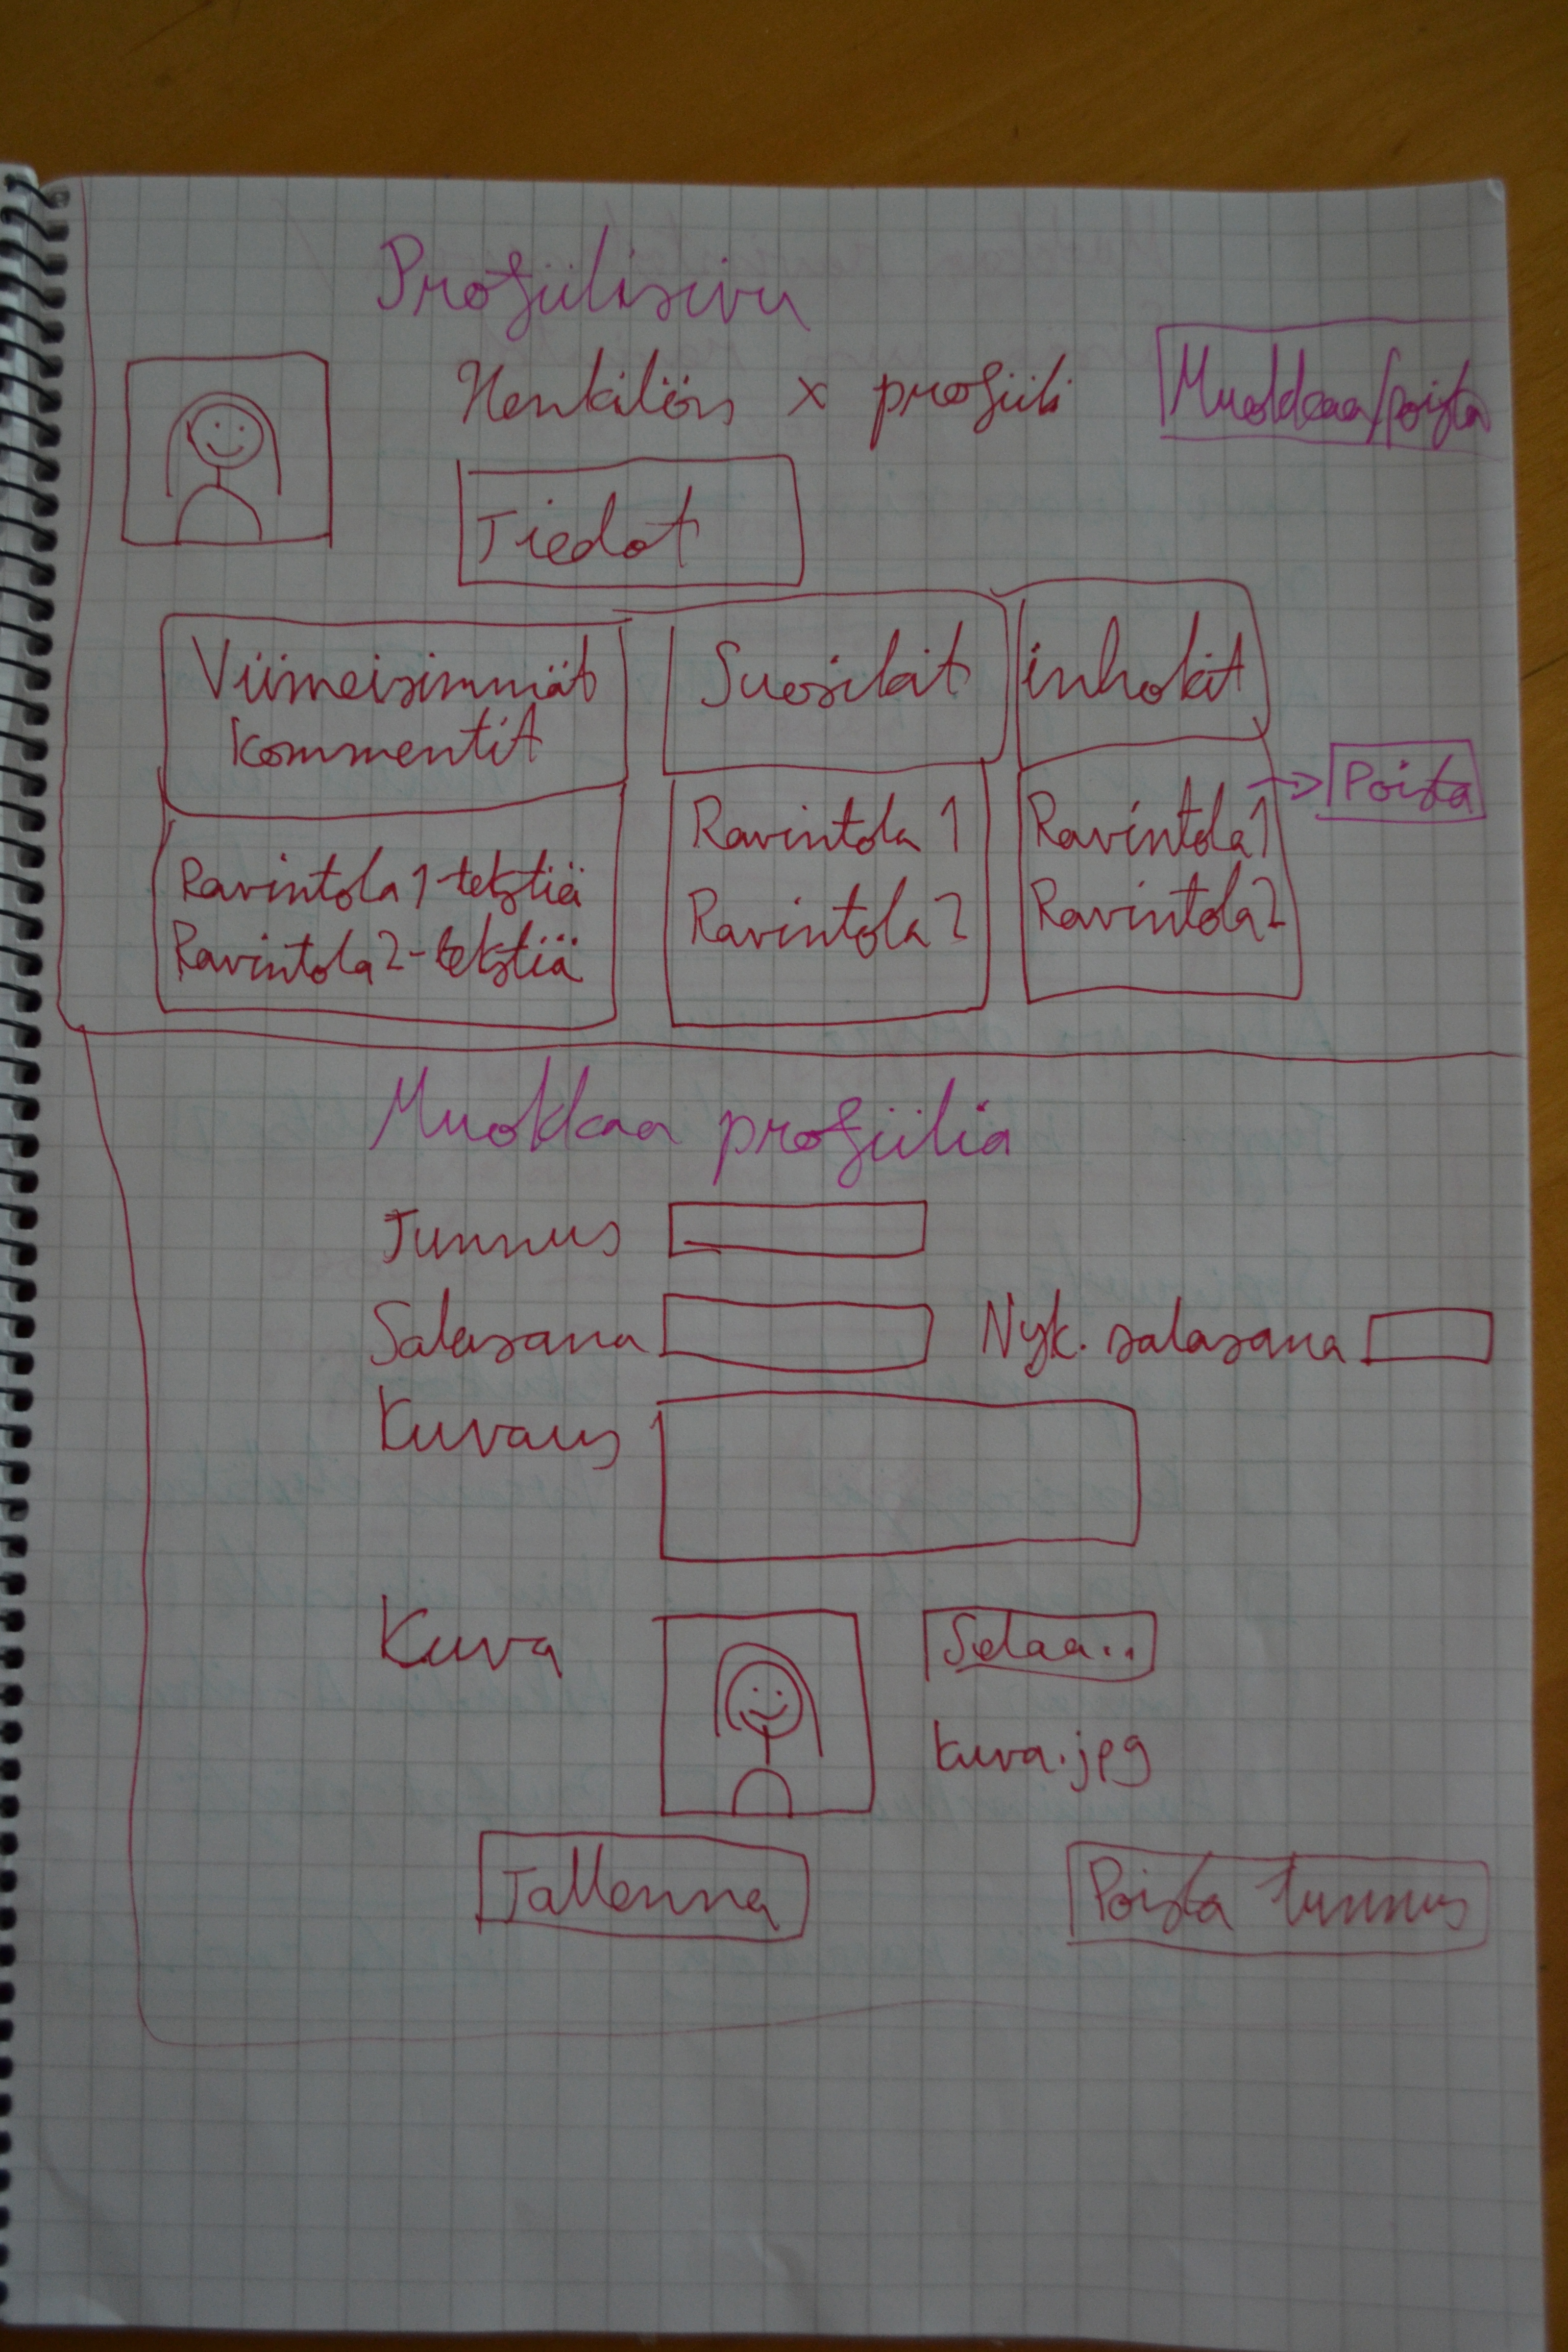 Profiilisivu
Henkilön x profiili
Muokkaa/poista
Tiedot
Viimeisimmät
kommentit
Suosikit
inhokit
Ravintola 1 -tekstiä
Ravintola 2 -tekstiä
Ravintola 1
Ravintola 2
Ravintola 1
Ravintola 2
Poista
Muokkaa profiilia
Tunnus
Salasana
Nyk. salasana
Kuvaus
Kuva
Selaa..
kuva.jpg
Tallenna
Poista tunnus